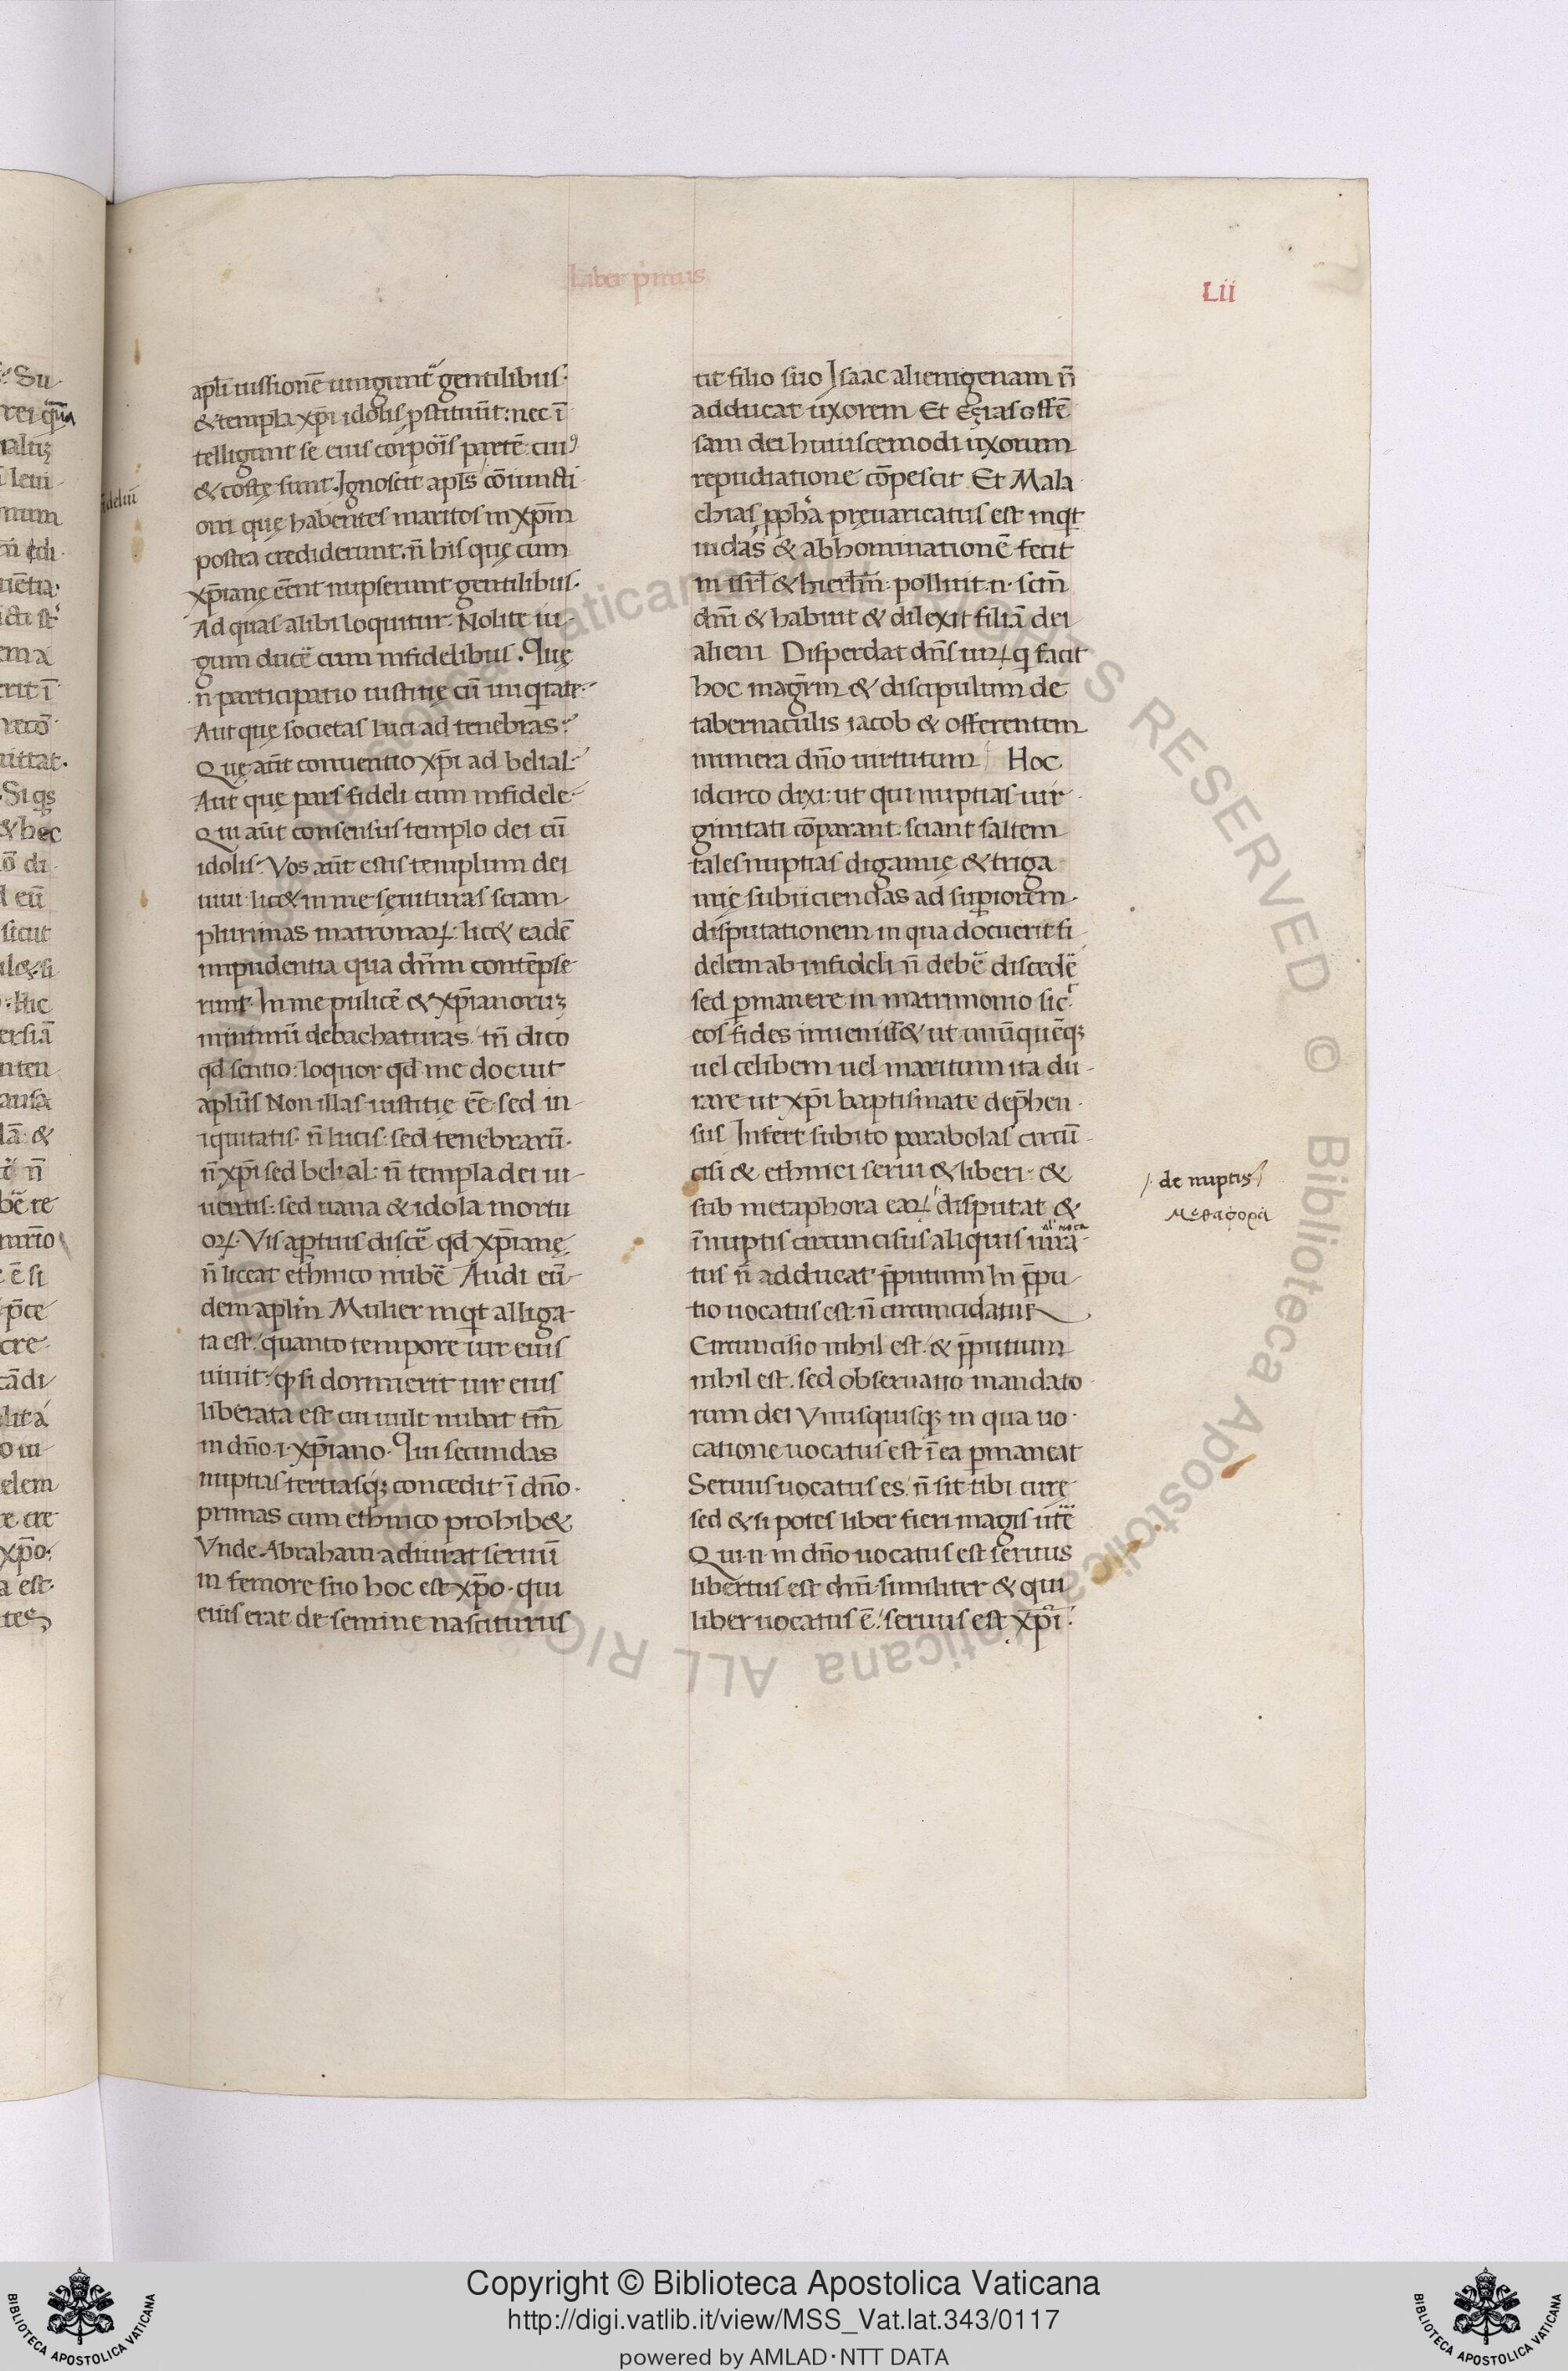 Liber p̄mus
Lii
apl̄i iussionē iungunt᷑ gentilibus·
& templa xp̄i idolis ꝓstituūt: nec ī
telligunt se eius corpoīs partē: cuiꝰ
& costę sunt. Ignoscit apl̄s cōiuncti
oni quę habentes maritos in xp̄m
postea crediderunt: n̄ his quę cum
xp̄ianę eēnt nupserunt gentilibus·
Ad quas alibi loquitur· Nolite iu-
gum ducē cum infidelibus. Quę
n̄ participatio iustitię cū iniq̇tate·
Aut quę societas luci ad tenebras?
Quę aūt conuentio xp̄i ad belial?
Aut quę pars fideli cum infidele?
Qui aūt consensus templo dei cū
idolis? Vos aūt estis templum dei
uiui· lic& in me sęuituras sciam
plurimas matronaꝝ: lic& eadē
impudentia qua dn̄m contēpse
runt· In me pulicē & xp̄ianoruꝫ
minimū debachaturas, tn̄ dico
qd̄ sentio: loquor qd̄ me docuit
aplūs Non illas iustitię eē· sed in-
iquitatis· n̄ lucis: sed tenebrarū·
n̄ xp̄i sed belial: n̄ templa dei ui-
uentis: sed uana & idola mortu
oꝝ. Vis aptius discē qd̄ xp̄ianę
n̄ liceat ethnico nubē Audi eū-
dem apl̄m Mulier inq̇t alliga-
ta est quanto tempore uir eius
uiuit: ꝙ si dormierit uir eius
liberata est cui uult nubat tm̄
in dn̄o·i·xp̄iano· Qui secundas
nuptias tertiasqꝫ concedit ī dn̄o·
primas cum ethnico prohib&
Vnde Abraham adiurat seruū
in femore suo hoc est xp̄o· qui
eius erat de semine nasciturus
tit filio suo Isaac alienigenam n̄
adducat uxorem Et Eçras offē
sam dei huiuscemodi uxorum
repudiatione cōpescit Et Mala
chias ꝓph̄a pręuaricatus est inq̇t
iudas & abhominationē fecit
in isrl̄ & hierl̄m: polluit·n·scm̄
dn̄i & habuit & dilexit filiā dei
alieni Disperdat dn̄s uiꝝ q̇ facit
hoc magr̄m & discipulum de
tabernaculis iacob & offerentem
munera dn̄o uirtutum Hoc
idcirco dixi: ut qui nuptias uir
ginitati cōparant· sciant saltem
tales nuptias digamię & triga
mię subiiciendas ad suꝑiorem
disputationem in qua docuerit fi
delem ab infideli n̄ debē discedē
sed ꝑmanere in matrimonio sic
eos fides inuenit & ut unūquēqꝫ
uel celibem uel maritum ita du-
rare ut xp̄i baptismate dep̄hen-
sus Infert subito parabolas circū-
cisi & ethnici serui & liberi· &
sub metaphora eaꝝ disputat &
ī nuptis circuncisus aliquis uira-
al' uoca
tus n̄ adducat p̄putium In p̄pu
tio uocatus est· n̄ circuncidatur
Circuncisio nihil est· & p̄putium
nihil est. sed obseruatio mandato
rum dei Vnusquisqꝫ in qua uo
catione uocatus est ī ea ꝑmaneat
Seruus uocatus es n̄ sit tibi curę
sed & si potes liber fieri magis utē
Qui·n·in dn̄o uocatus est seruus
libertus est dn̄i· similiter & qui
liber uocatus ē: seruus est xp̄i·
de nuptis
Μεταφορά
Copyright © Biblioteca Apostolica Vaticana
http://digi.vatlib.it/view/MSS_Vat.lat.343/0117
powered by AMLAD·NTT DATA
BIBLIOTECA APOSTOLICA VATICANA
BIBLIOTECA APOSTOLICA VATICANA